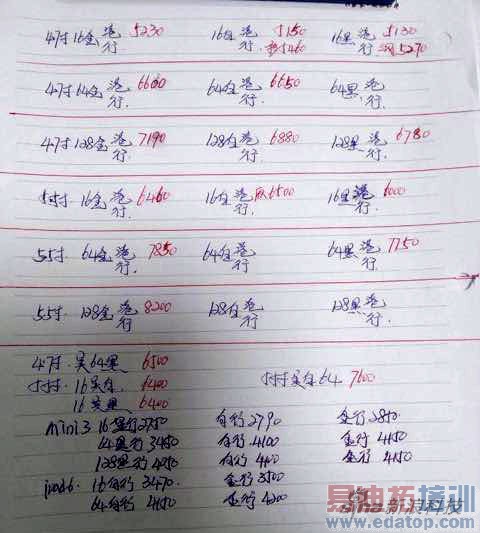 47寸16金港行 5230 16白港行 5150 16黑港行 5130
5270
47寸64金港行 6600 64白港行 6650 64黑港行
47寸128金港行 7190 128白港行 6880 128黑港行 6780
16金港行 6460 16白港行 6500 16黑港行 6000
55寸 64金港行 7850 64白港行 64黑港行 7750
55寸 128金港行 8200 128白港行 128黑港行
47寸 美64黑 6500
16美白 6400 美白64 7600
16美黑 6400
mini3 16黑行2750 白行2790 金行2850
64黑行3450 白行4100 金行4150
128黑行4050 白行4400 金行4150
ipad6 16白行3470 金行3500
64白行4150 金行4200
易迪拓培训
sina新浪科技
www.edatop.com